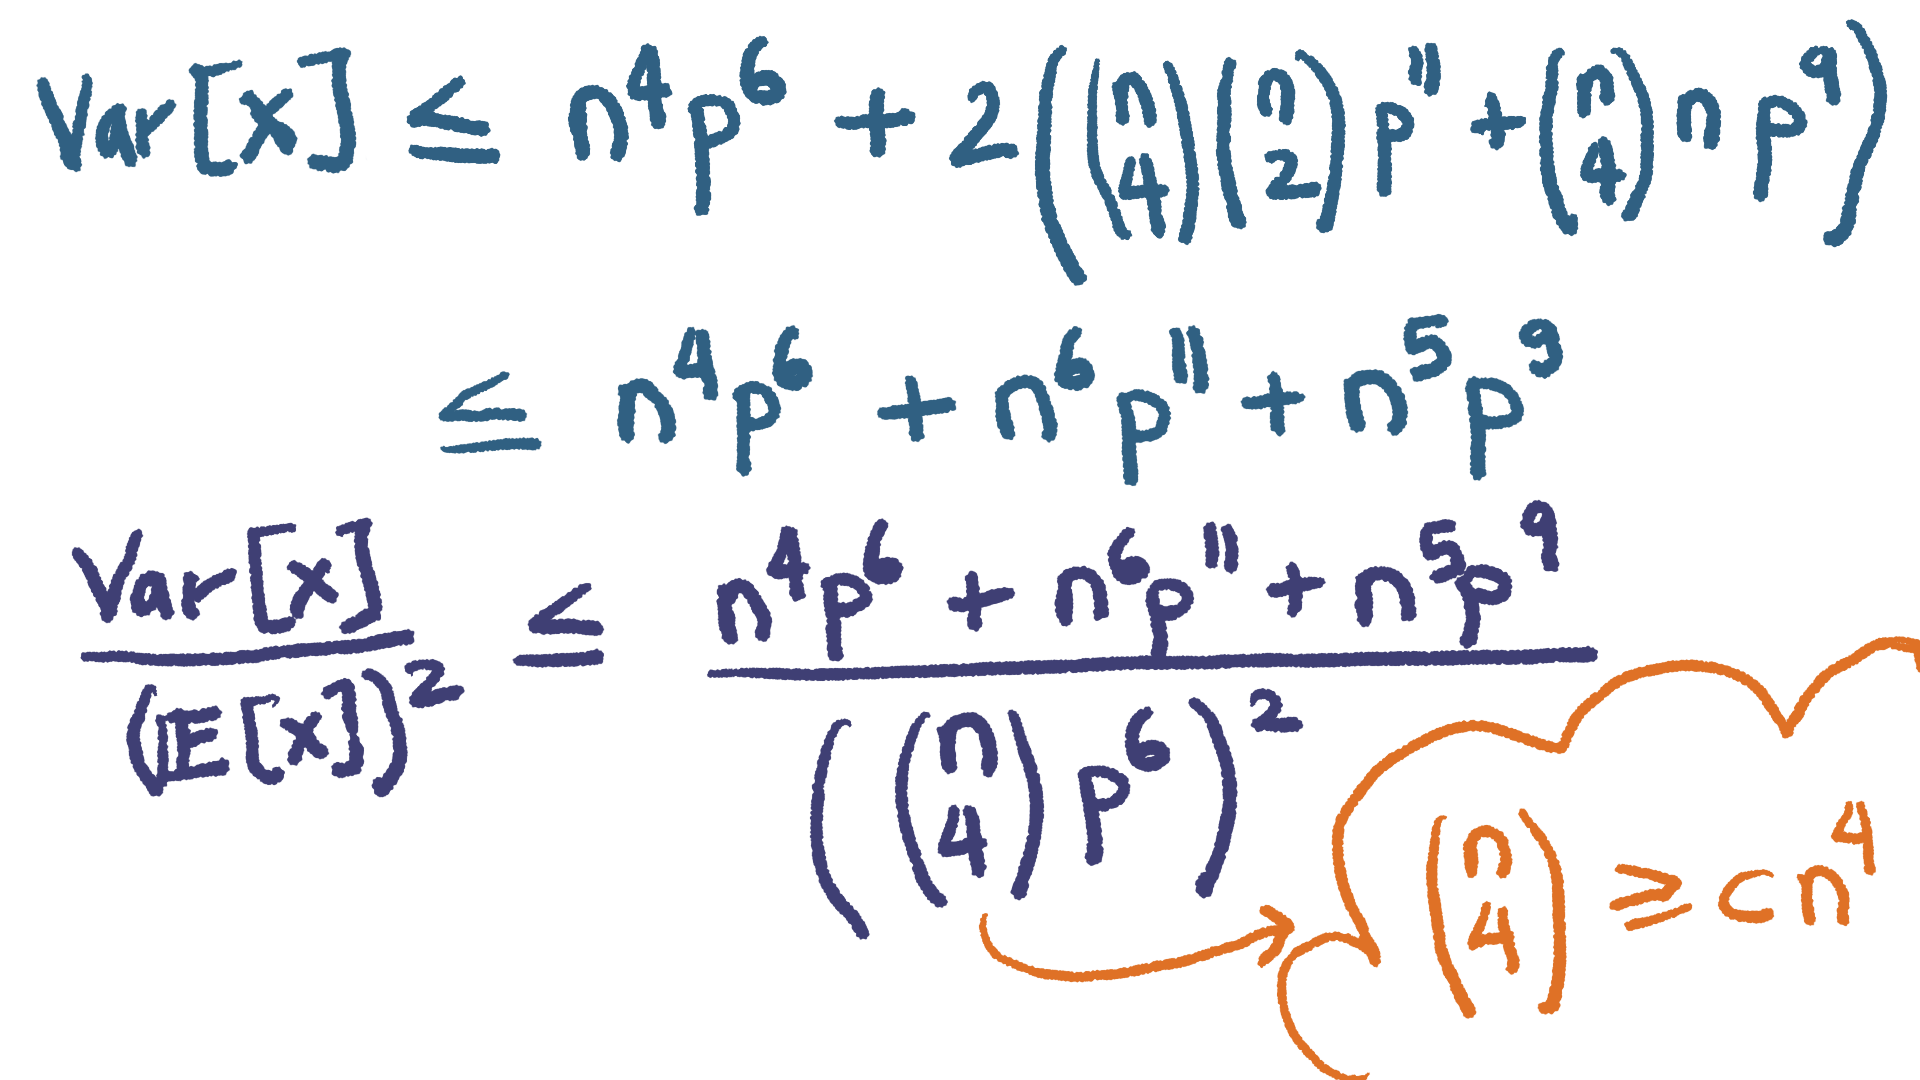 Var[x] ≤ n⁴p⁶ + 2((n 4)(n 2)p¹¹ + (n 4) n p⁹)
≤ n⁴p⁶ + n⁶p¹¹ + n⁵p⁹
Var[x] / (𝔼[x])² ≤ n⁴p⁶ + n⁶p¹¹ + n⁵p⁹ / ((n 4) p⁶)²
(n 4) ≥ cn⁴